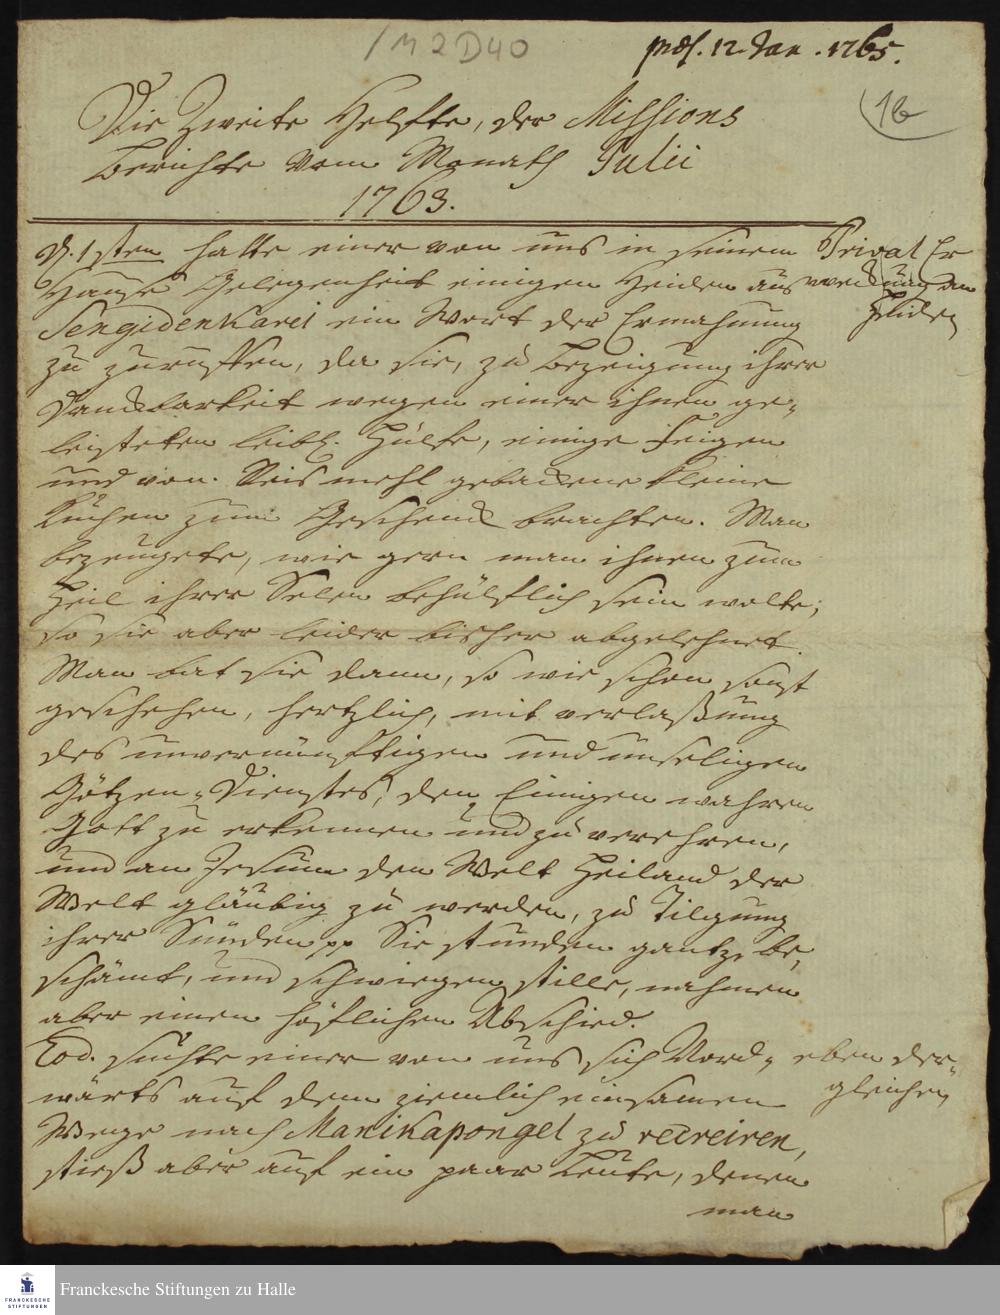 1 M 2 D 40
præs. 12. Jan. 1765.
16
Die Zweite Helfte, der Missions
Berichte vom Monath Julii
1763.
D. 1sten hatte einer von uns in seinem
Hause Gelegenheit einigen Heiden aus
Sengidenkarei ein Wort der Ermahnung
zu zuruffen, da sie, zu Bezeigung ihrer
Danckbarkeit wegen einer ihnen ge-
leisteten leibl. Hülfe, einige Feigen
und von Reismehl gebackene kleine
Kuchen zum Geschenck brachten. Man
bezeugete, wie gern man ihnen zum
Heil ihrer Selen behülflich sein wolte;
so sie aber leider bisher abgelehnet.
Man bat sie dann, so wie schon sonst
geschehen, hertzlich, mit verlaßung
des unvernünftigen und unseligen
Götzen-Dienstes, den Einigen wahren
Gott zu erkennen und zu verehren,
und an Jesum den Welt Heiland der
Welt gläubig zu werden, zu Tilgung
ihrer Sünden pp Sie stunden gantz be-
schämt, und schwiegen stille, nahmen
aber einen höflichen Abschied.
Eod. suchte einer von uns sich Nord-
wärts auf dem ziemlich einsamen
Wege nach Manikapongel zu recreiren,
stieß aber auf ein paar Leute, denen
man
Privat Er
weckung an
Heiden
eben der-
gleichen
Franckesche Stiftungen zu Halle
FRANCKESCHE
STIFTUNGEN